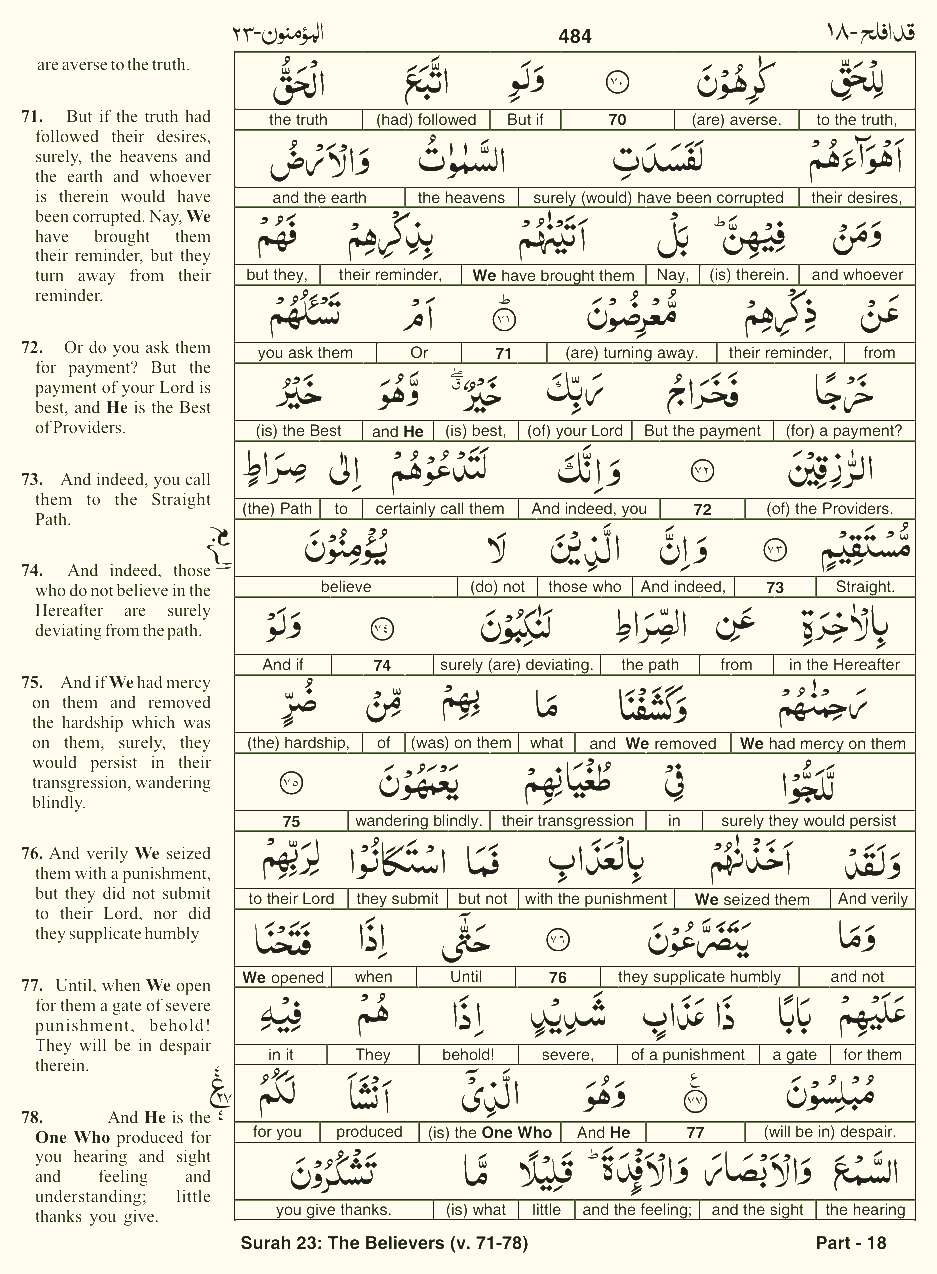 قد افلح-١٨ 484 المؤمنون-٢٣
are averse to the truth.
71. But if the truth had
followed their desires,
surely, the heavens and
the earth and whoever
is therein would have
been corrupted. Nay, We
have brought them
their reminder, but they
turn away from their
reminder.
72. Or do you ask them
for payment? But the
payment of your Lord is
best, and He is the Best
of Providers.
73. And indeed, you call
them to the Straight
Path.
74. And indeed, those
who do not believe in the
Hereafter are surely
deviating from the path.
75. And if We had mercy
on them and removed
the hardship which was
on them, surely, they
would persist in their
transgression, wandering
blindly.
76. And verily We seized
them with a punishment,
but they did not submit
to their Lord, nor did
they supplicate humbly
77. Until, when We open
for them a gate of severe
punishment, behold!
They will be in despair
therein.
78. And He is the
One Who produced for
you hearing and sight
and feeling and
understanding; little
thanks you give.
لِلۡحَقِّ كٰرِهُوۡنَ ٧٠ وَلَوِ اتَّبَعَ الۡحَقُّ
to the truth, (are) averse. 70 But if (had) followed the truth
اَهۡوَآءَهُمۡ لَفَسَدَتِ السَّمٰوٰتُ وَالۡاَرۡضُ
their desires, surely (would) have been corrupted the heavens and the earth
وَمَنۡ فِيۡهِنَّ ؕ بَلۡ اَتَيۡنٰهُمۡ بِذِكۡرِهِمۡ فَهُمۡ
and whoever (is) therein. Nay, We have brought them their reminder, but they,
عَنۡ ذِكۡرِهِمۡ مُّعۡرِضُوۡنَ ؕ ٧١ اَمۡ تَسۡـَٔلُهُمۡ
from their reminder, (are) turning away. 71 Or you ask them
خَرۡجًا فَخَرَاجُ رَبِّكَ خَيۡرٌ ۖ ق وَّهُوَ خَيۡرُ
(for) a payment? But the payment (of) your Lord (is) best, and He (is) the Best
الرّٰزِقِيۡنَ ٧٢ وَاِنَّكَ لَتَدۡعُوۡهُمۡ اِلٰى صِرَاطٍ
(of) the Providers. 72 And indeed, you certainly call them to (the) Path
مُّسۡتَقِيۡمٍ ٧٣ وَاِنَّ الَّذِيۡنَ لَا يُؤۡمِنُوۡنَ
Straight. 73 And indeed, those who (do) not believe
بِالۡاٰخِرَةِ عَنِ الصِّرَاطِ لَنٰكِبُوۡنَ ٧٤ وَلَوۡ
in the Hereafter from the path surely (are) deviating. 74 And if
رَحِمۡنٰهُمۡ وَكَشَفۡنَا مَا بِهِمۡ مِّنۡ ضُرٍّ
We had mercy on them and We removed what (was) on them of (the) hardship,
لَّلَجُّوۡا فِىۡ طُغۡيَانِهِمۡ يَعۡمَهُوۡنَ ٧٥
surely they would persist in their transgression wandering blindly. 75
وَلَقَدۡ اَخَذۡنٰهُمۡ بِالۡعَذَابِ فَمَا اسۡتَكَانُوۡا لِرَبِّهِمۡ
And verily We seized them with the punishment but not they submit to their Lord
وَمَا يَتَضَرَّعُوۡنَ ٧٦ حَتّٰٓى اِذَا فَتَحۡنَا
and not they supplicate humbly 76 Until when We opened
عَلَيۡهِمۡ بَابًا ذَا عَذَابٍ شَدِيۡدٍ اِذَا هُمۡ فِيۡهِ
for them a gate of a punishment severe, behold! They in it
مُبۡلِسُوۡنَ ع ٧٧ وَهُوَ الَّذِىۡۤ اَنۡشَاَ لَكُمُ
(will be in) despair. 77 And He (is) the One Who produced for you
السَّمۡعَ وَالۡاَبۡصَارَ وَالۡاَفۡـِٕدَةَ ؕ قَلِيۡلًا مَّا تَشۡكُرُوۡنَ
the hearing and the sight and the feeling; little (is) what you give thanks.
Surah 23: The Believers (v. 71-78) Part - 18